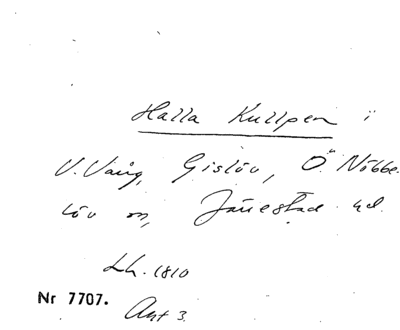 Halla Kullpen i
V. Vång, Gislöv, Ö. Nöbbe-
löv sn, Järestad hd.
Lh. 1810
Nr 7707. Akt 3.